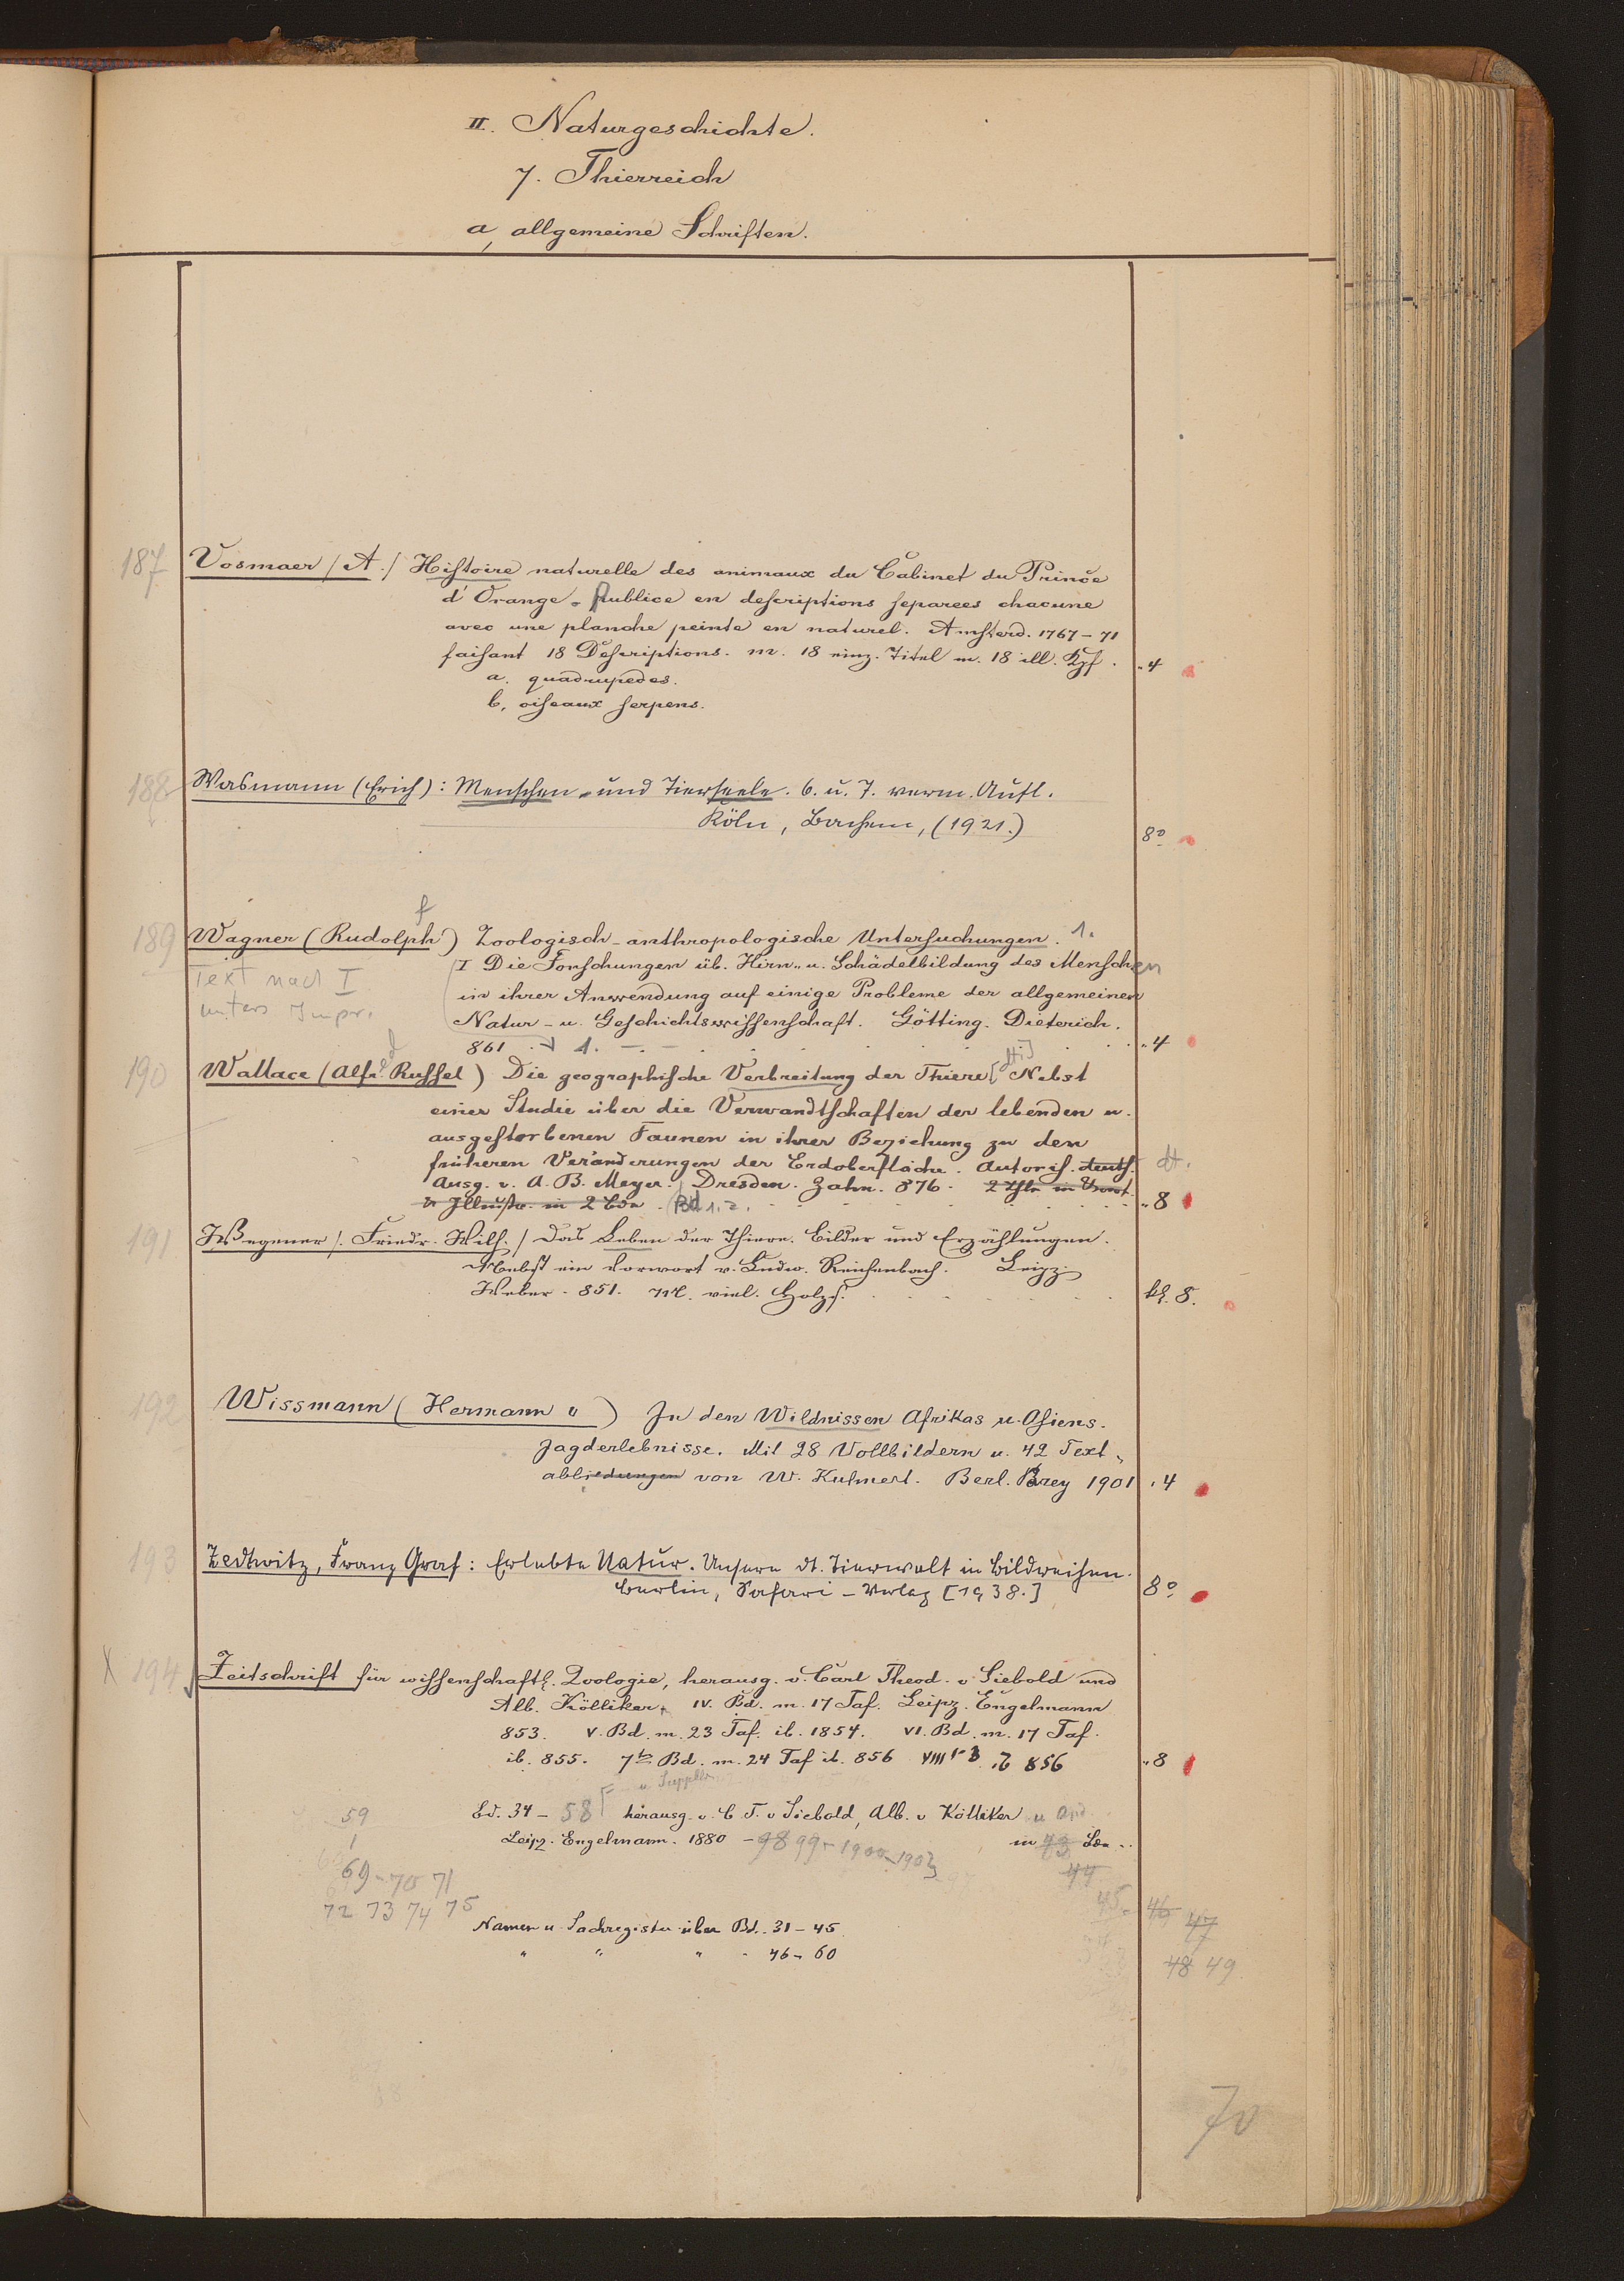 II. Naturgeschichte.
7. Thierreich
a, allgemeine Schriften.
187 Vosmaer / A. / Histoire naturelle des animaux du Cabinet du Prince
d'Orange. Publice en descriptions separees chacune
avec une planche peinte en naturel. Amsterd. 1767-71
faisant 18 Descriptions. m. 18 einz. Titel m. 18 ill. Kpf. "4
a. quadrupedes.
b, oiseaux serpens.
188 Wasmann (Erich): Menschen- und Tierseele. 6. u. 7. verm. Aufl.
Köln, Bachem, (1921.) 8º
f
189 Wagner (Rudolph) Zoologisch-anthropologische Untersuchungen. 1.
Text nach I
I Die Forschungen üb. Hirn- u. Schädelbildung des Menschen
unters Impr.
in ihrer Anwendung auf einige Probleme der allgemeinen
Natur- u. Geschichtswissenschaft. Götting. Dieterich.
861 1. "4
190 Wallace (Alfr. Russel) Die geographische Verbreitung der Thiere [ Nebst
einer Studie über die Verwandtschaften der lebenden u.
ausgestorbenen Faunen in ihrer Beziehung zu den
früheren Veränderungen der Erdoberfläche. Autoris. deuts. dt.
Ausg. v. A. B. Meyer. Dresden. Zahn. 876.
Illustr. in 2 Bde. Bd 1. 2. "8
191 Wegener /. Friedr. Wilh. / Das Leben der Thiere. Bilder und Erzählungen.
Nebst ein Vorwort v. Ludw. Reichenbach. Leipz.
Weber. 851. M. viel. Holzs. kl. 8.
192 Wissmann (Hermann v) In den Wildnissen Afrikas u. Asiens.
Jagderlebnisse. Mit 28 Vollbildern u. 42 Text-
abbiedungen von W. Kuhnert. Berl. Parey 1901 "4
193 Zedtwitz, Franz Graf: Erlebte Natur. Unsere dt. Tierwelt in Bildweisen.
Berlin, Safari-Verlag [1938.] 8º
X 194 Zeitschrift für wissenschaftl. Zoologie, herausg. v. Carl Theod. v Siebold und
Alb. Kölliker. IV. Bd. m. 17 Taf. Leipz. Engelmann
853. V. Bd. m. 23 Taf. ib. 1854. VI. Bd. m. 17 Taf.
ib. 855. 7te Bd. m. 24 Taf ib. 856 VIII 1-3 ib 856 "8
u Supplbr
59 Bd. 34 - 58 herausg. v. C. T. v Siebold, Alb. v Kölliker u And.
Leipz. Engelmann. 1880 - 98 99-1900-1903 in 43 Bde
69-70 71 44
72 73 74 75 45. 46 47
Namen u. Sachregister über Bd. 31-45
" " " " 46-60
48 49
70